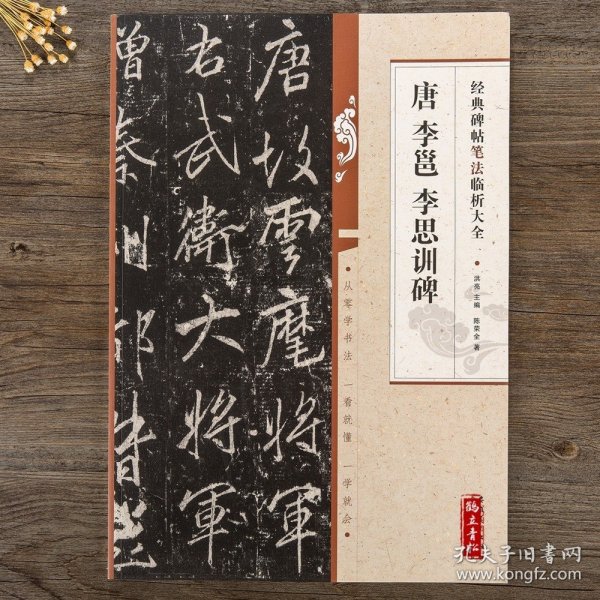 经典碑帖笔法临析大全
洪亮 主编 陈荣全 著
唐 李邕 李思训碑
从零学书法 一看就懂 一学就会
唐故雲麾將軍
右武衛大將軍
贈秦州都督
鹤立青松
孔夫子旧书网
www.kongfz.com